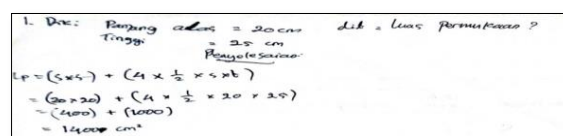 1. Dik: Panjang alas = 20 cm dit = luas permukaan ?
Tinggi = 25 cm
Penyelesaian
Lp = (s x s) + (4 x 1/2 x s x t)
= (20 x 20) + (4 x 1/2 x 20 x 25)
= (400) + (1000)
= 1400 cm²